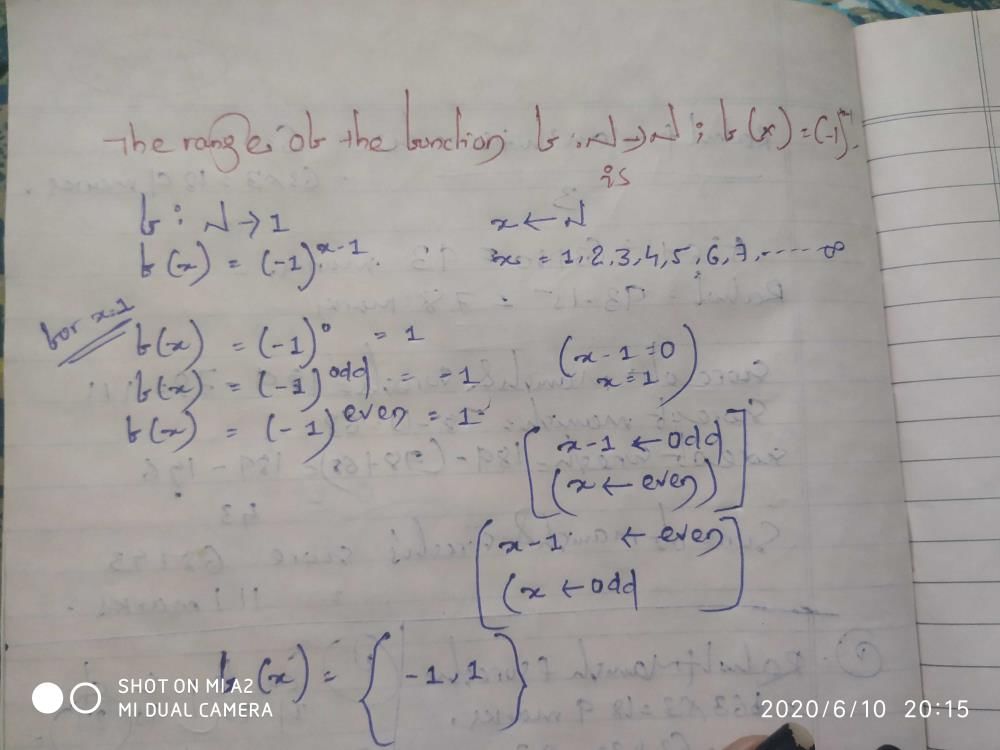 The range of the function f : N→N ; f(x) = (-1)ˣ⁻¹.
is
f : N → 1
x ← N
f(x) = (-1)ˣ⁻¹.
x = 1, 2, 3, 4, 5, 6, 7, ----- ∞
for x=1
f(x) = (-1)⁰ = 1
(x-1=0)
f(x) = (-1)^odd = -1
x=1)
f(x) = (-1)^even = 1
[x-1 ← odd
(x ← even)]
[x-1 ← even
(x ← odd]
f(x) = {-1, 1}
SHOT ON MI A2
MI DUAL CAMERA
2020/6/10 20:15